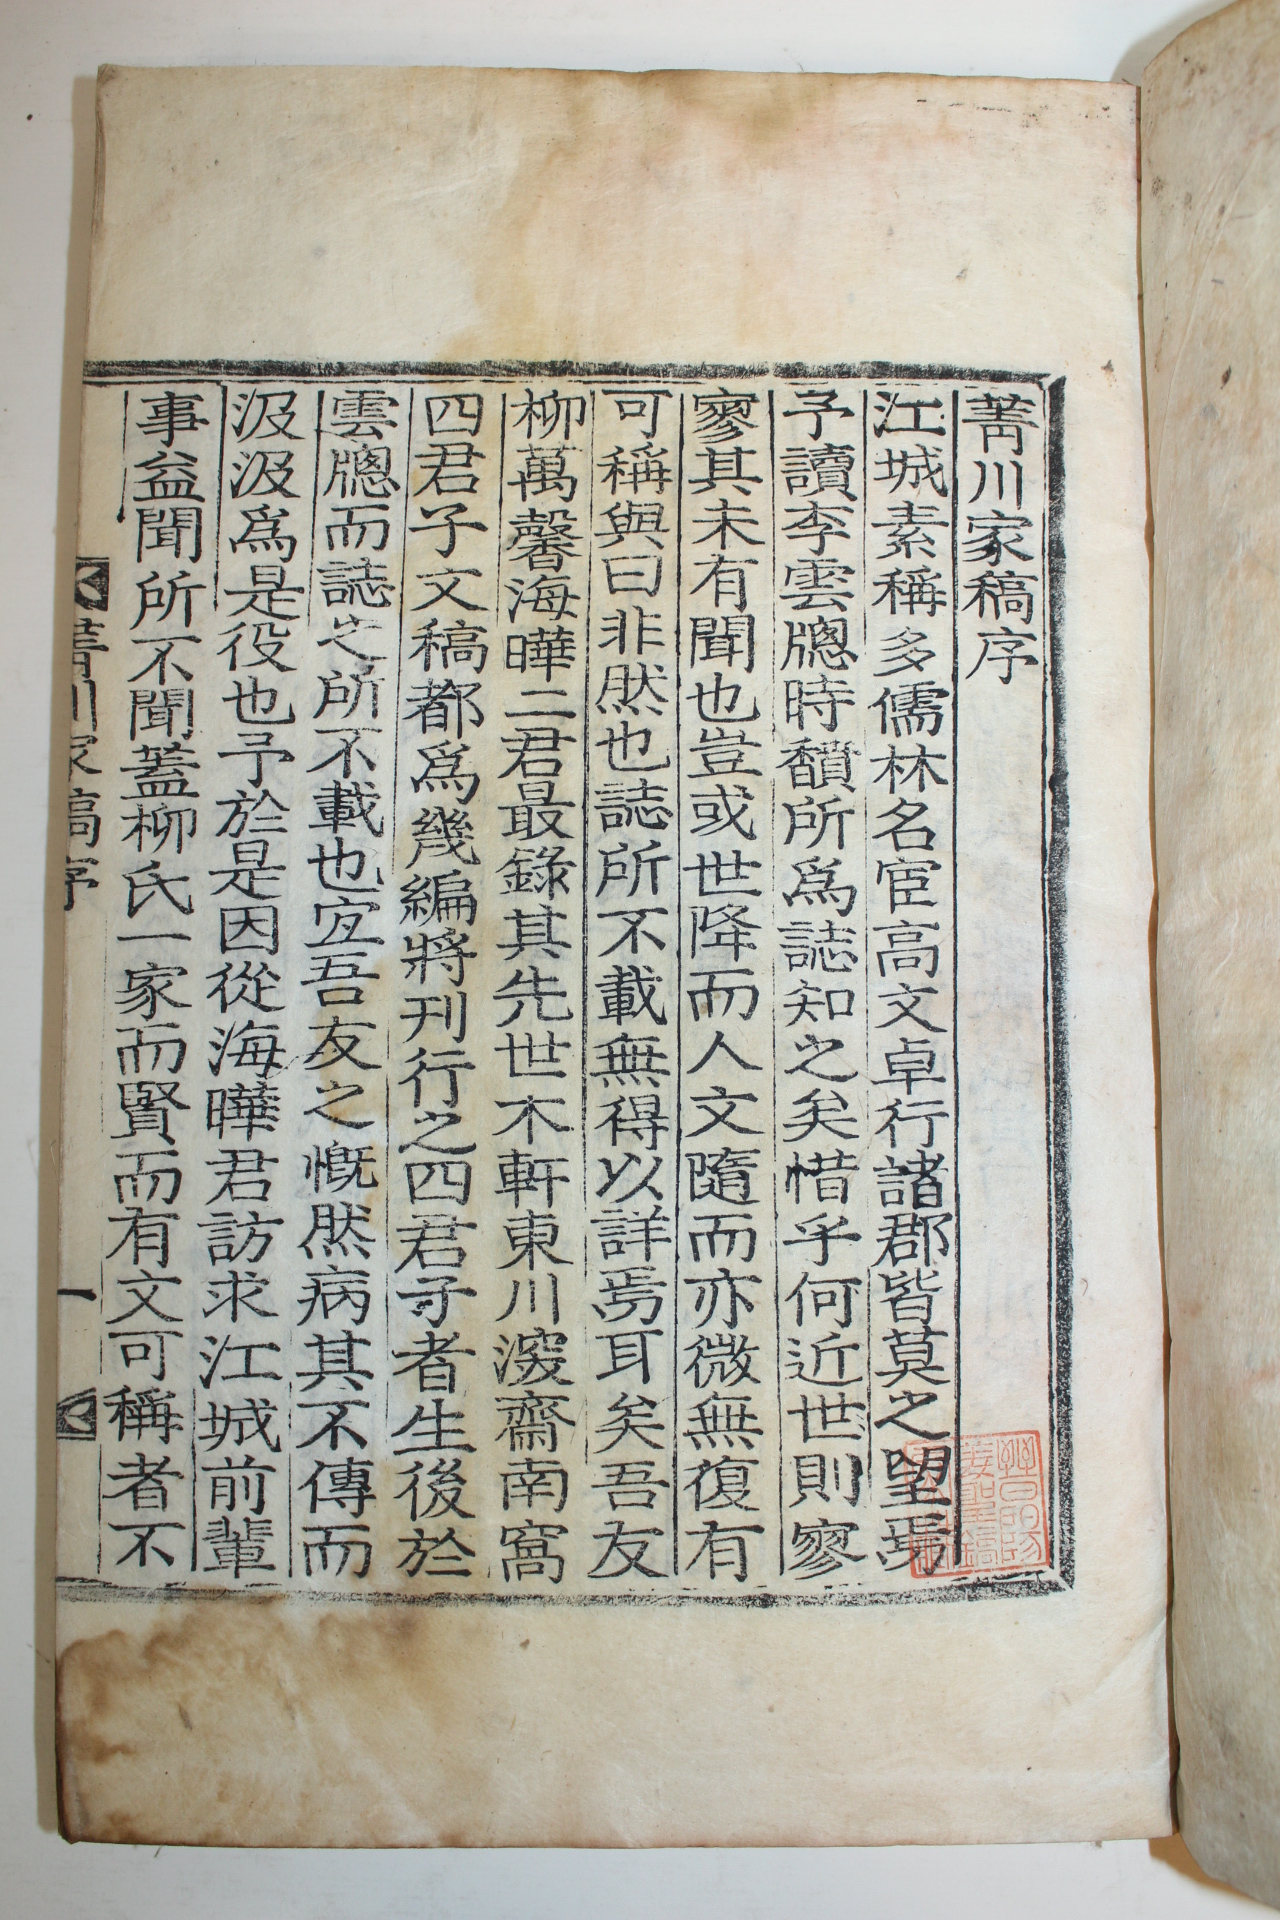 菁川家稿序
江城素稱多儒林名宦高文卓行諸郡皆莫之望焉
予讀李雲牕時馩所爲誌知之矣惜乎何近世則寥
寥其未有聞也豈或世降而人文隨而亦微無復有
可稱與曰非然也誌所不載無得以詳焉耳矣吾友
柳萬馨海曄二君最錄其先世木軒東川濅齋南窩
四君子文稿都爲幾編將刊行之四君子者生後於
雲牕而誌之所不載也宐吾友之慨然病其不傳而
汲汲爲是役也予於是因從海曄君訪求江城前輩
事益聞所不聞蓋柳氏一家而賢而有文可稱者不
菁川家稿序
一